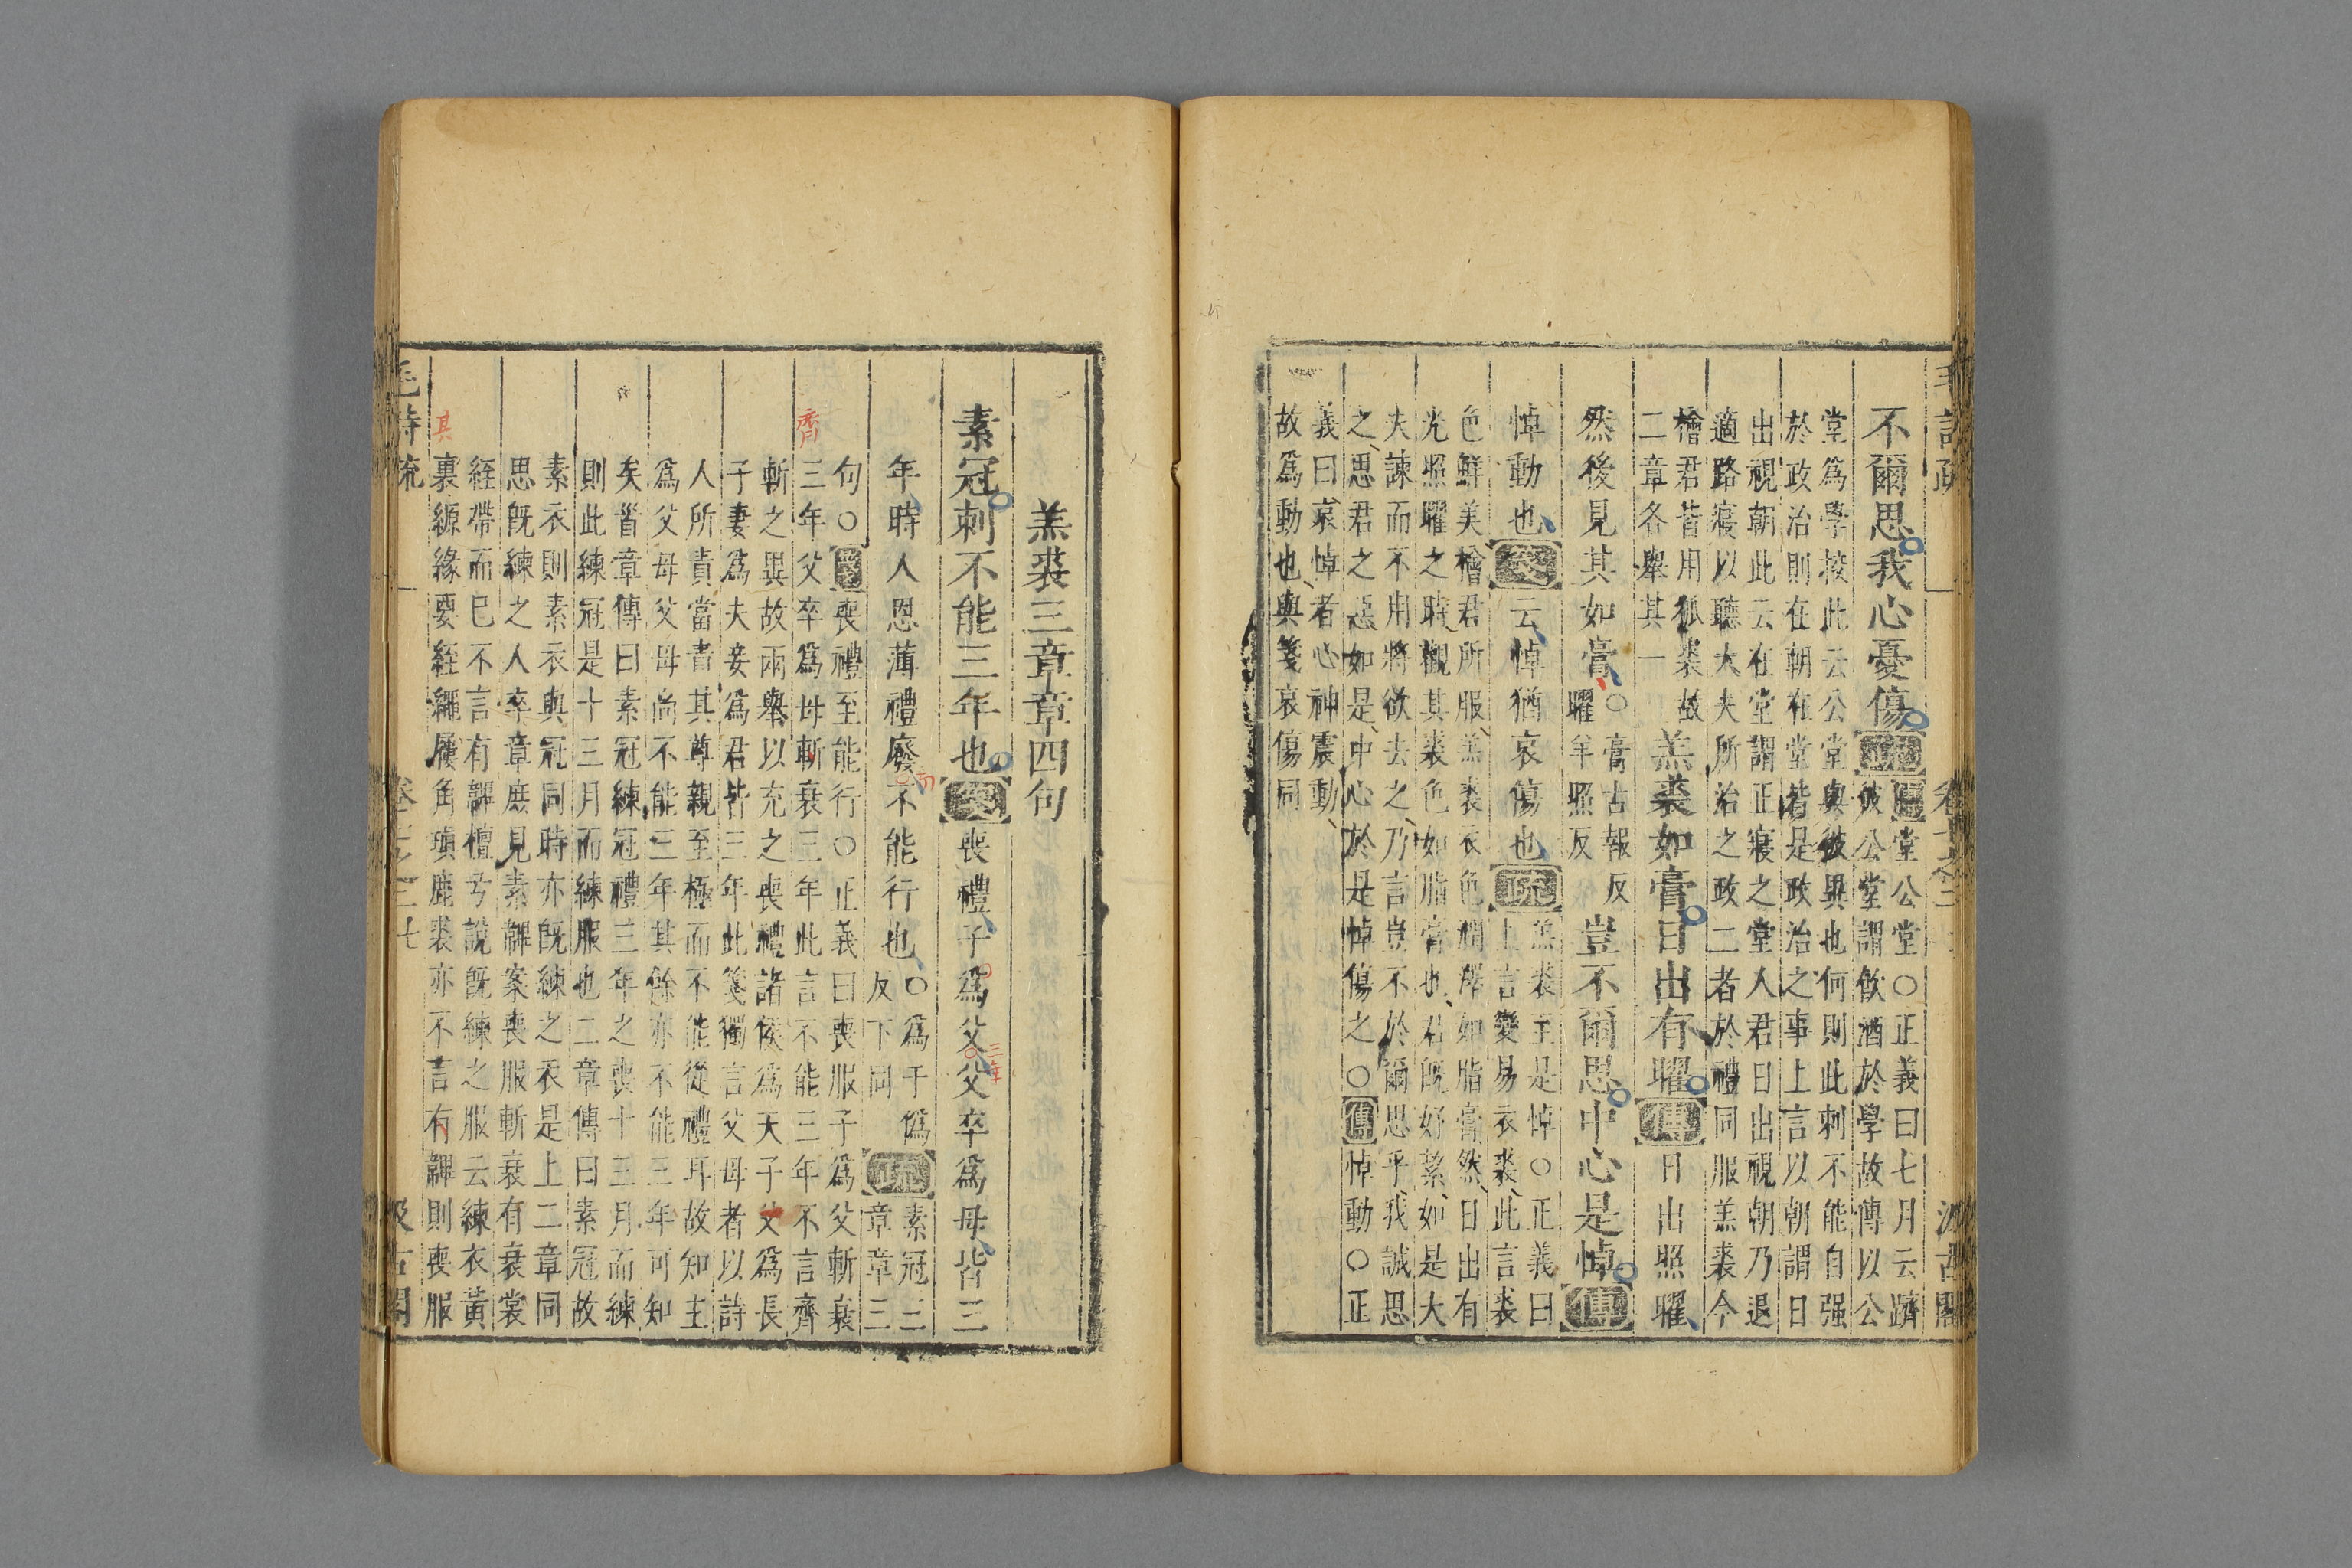 不爾思我心憂傷疏傳堂公堂○正義曰七月云躋
彼公堂謂飲酒於學故傳以公
堂爲學校此云公堂與彼異也何則此刺不能自强
於政治則在朝在堂皆是政治之事上言以朝謂日
出視朝此云在堂謂正寢之堂人君日出視朝乃退
適路寢以聽大夫所治之政二者於禮同服羔裘今
檜君皆用狐裘故
二章各舉其一
羔裘如膏日出有曜傳日出照曜
然後見其如膏○膏古報反
曜羊照反
豈不爾思中心是悼傳
悼動也箋云悼猶哀傷也疏羔裘至是悼○正義曰
上言變易衣裘此言裘
色鮮美檜君所服羔裘衣色潤澤如脂膏然日出有
光照曜之時觀其裘色如脂膏也君既好絜如是大
夫諫而不用將欲去之乃言豈不於爾思乎我誠思
之思君之惡如是中心於是悼傷之○傳悼動○正
義曰哀悼者心神震動
故爲動也與箋哀傷同
羔裘三章章四句
素冠刺不能三年也箋喪禮子爲父父卒爲母皆三
三年
年時人恩薄禮廢不能行也○爲于僞
反下同
疏素冠三
章章三
句○箋喪禮至能行○正義曰喪服子爲父斬衰
齊
三年父卒爲母斬衰三年此言不能三年不言齊
斬之異故兩舉以充之喪禮諸侯爲天子父爲長
子妻爲夫妾爲君皆三年此箋獨言父母者以詩
人所責當責其尊親至極而不能從禮耳故知主
爲父母父母尚不能三年其餘亦不能三年可知
矣首章傳曰素冠練冠禮三年之喪十三月而練
則此練冠是十三月而練服也二章傳曰素冠故
素衣則素衣與冠同時亦既練之衣是上二章同
思既練之人卒章庶見素韠案喪服斬衰有衰裳
絰帶而已不言有韠檀弓說既練之服云練衣黃
其
裏縓緣要絰繩屨角瑱鹿裘亦不言有韠則喪服
毛詩疏